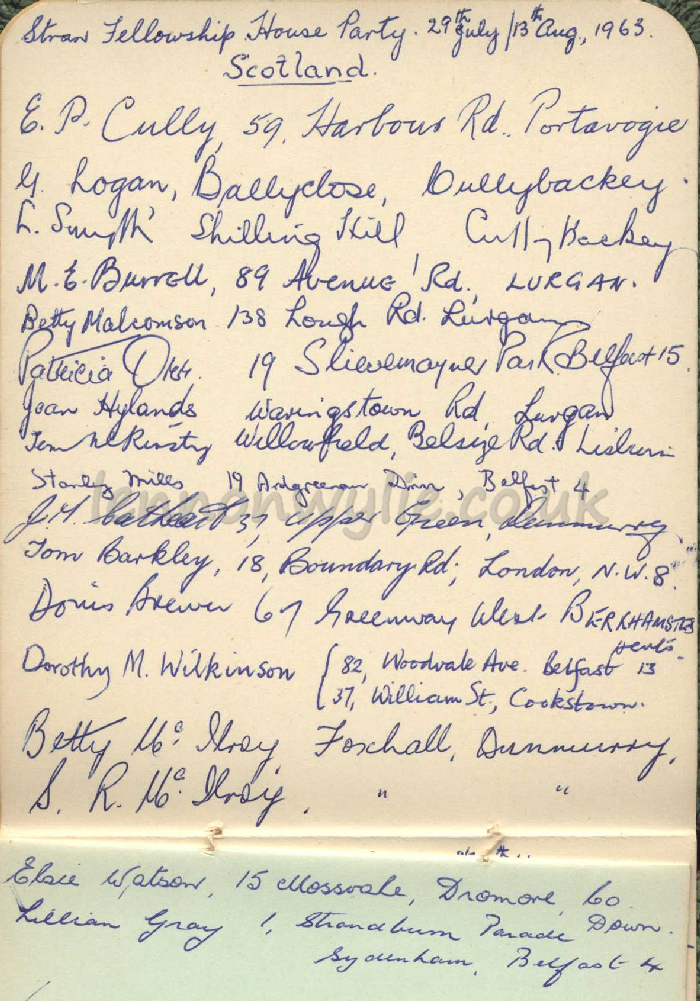 Stran Fellowship House Party. 29th July/13th Aug, 1963.
Scotland.
E. P. Cully, 59, Harbour Rd., Portavogie
G. Logan, Ballyclose, Cullybackey.
L. Smyth Shilling Hill Cullybackey
M. E. Burrell, 89 Avenue Rd, LURGAN.
Betty Malcomson 138 Lough Rd. Lurgan
Patricia 19 Slievemoyne Park. Belfast 15.
Joan Hylands Waringstown Rd, Lurgan
Tom McKinsty Willowfield, Belsize Rd. Lisburn
Stanley Mills 19 Ardgreenan Belfast 4
J. H. 37, Upper Green, Dunmurry
lennonwylie.co.uk
Tom Barkley, 18, Boundary Rd; London, N.W.8.
Doris Brewer 67 Greenway West BERKHAMSTED
Herts.
Dorothy M. Wilkinson { 82, Woodvale Ave. Belfast 13
37, William St., Cookstown.
Betty McIlroy, Foxhall, Dunmurry,
S. R. McIlroy, " "
Elsie Watson, 15 Mossvale, Dromore, Co.
Lillian Gray 1, Strandburn Parade Down.
Sydenham, Belfast 4